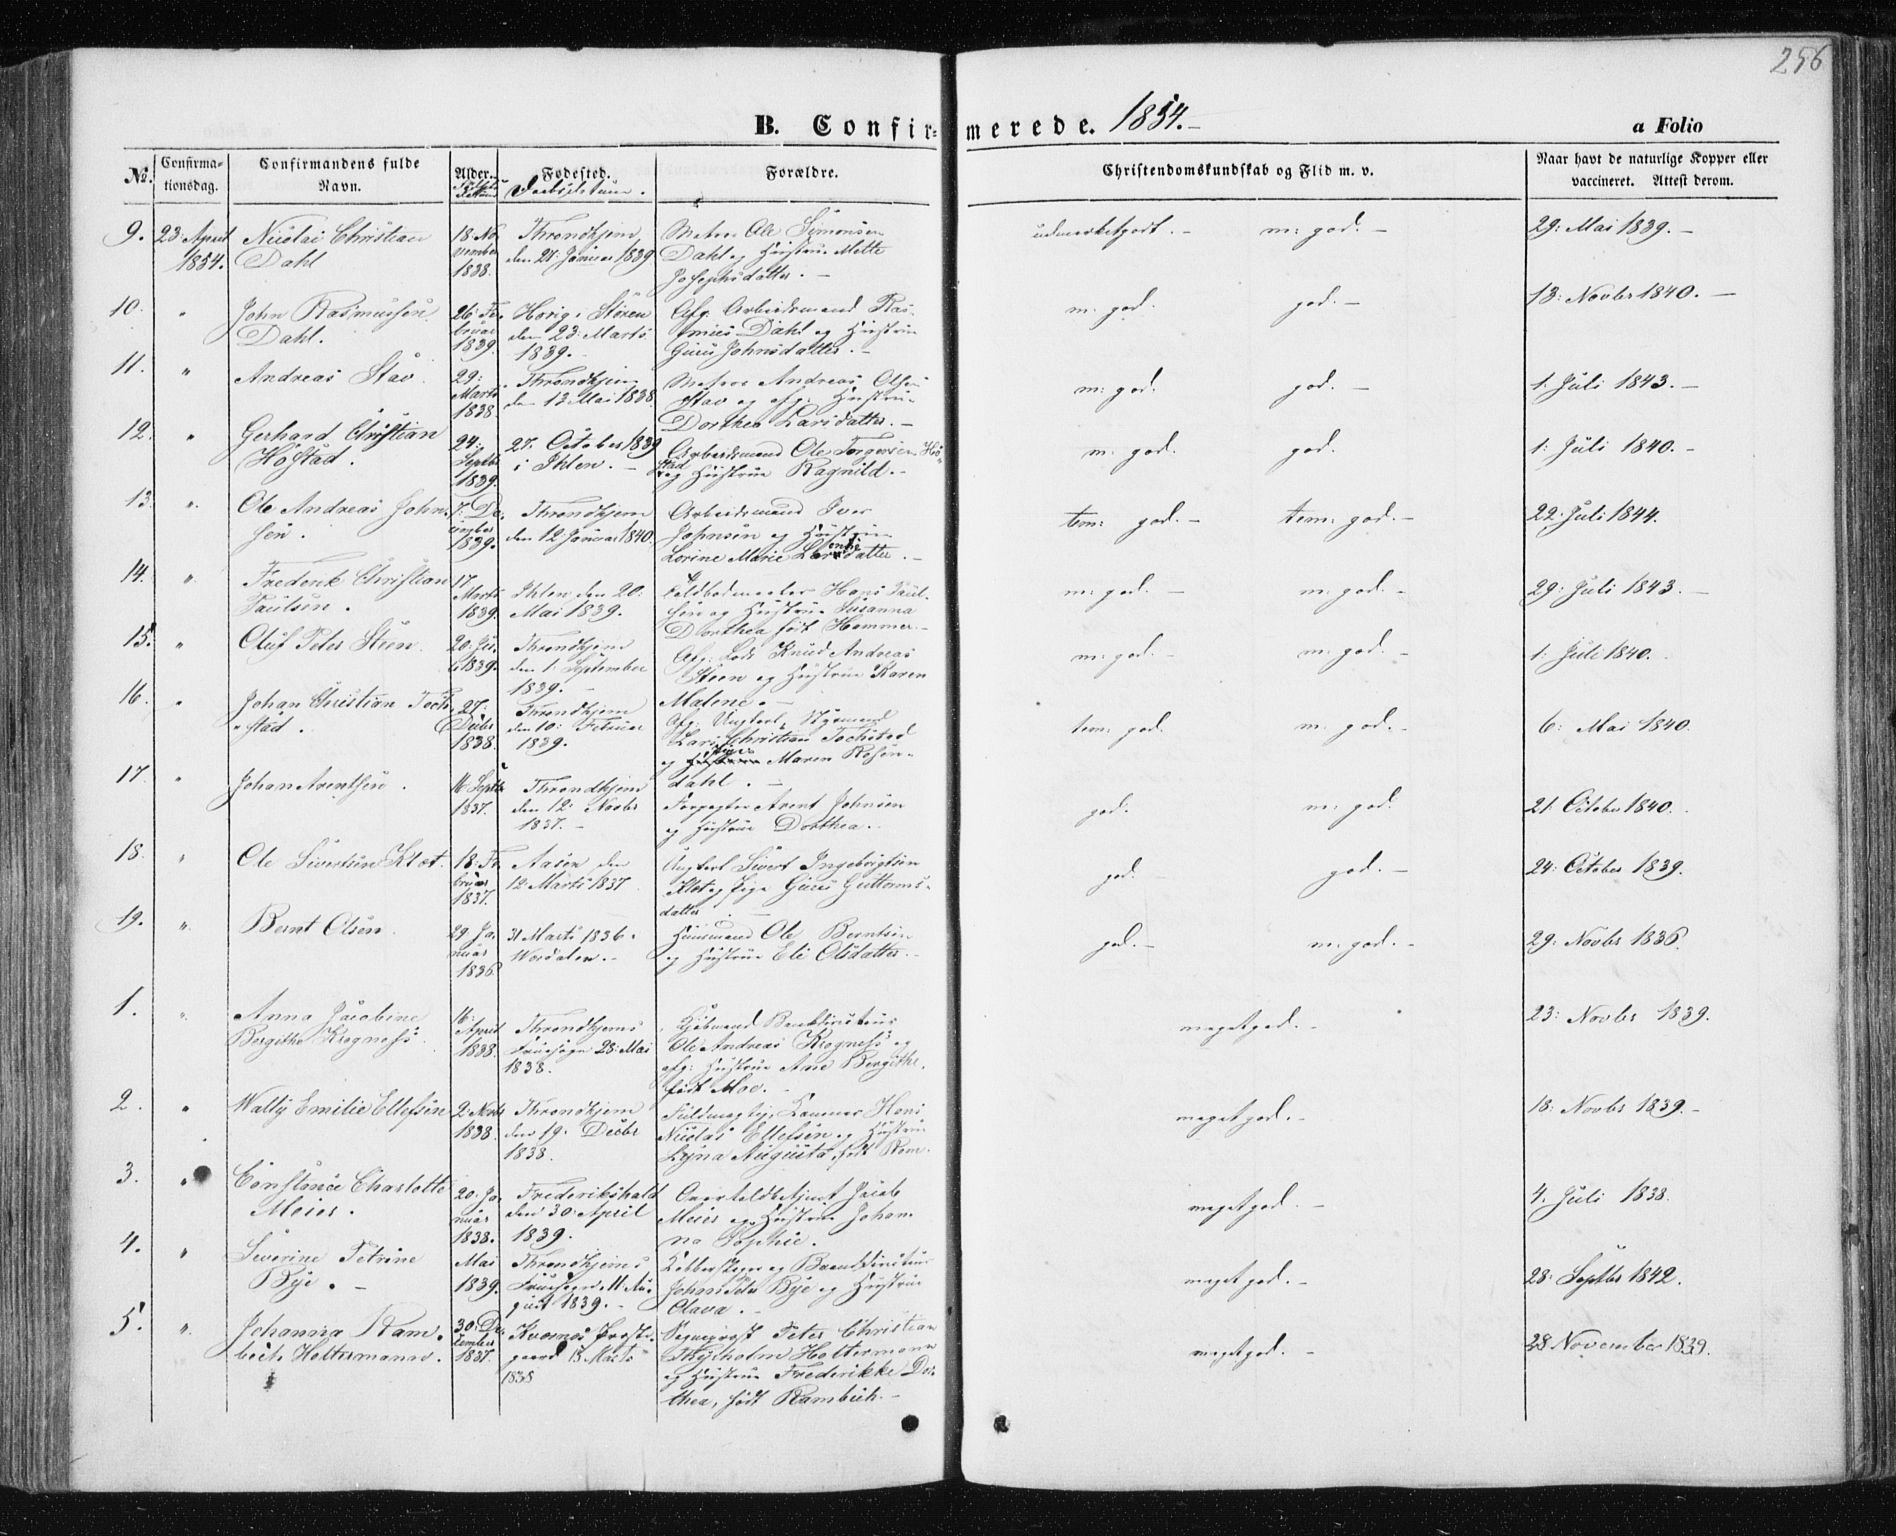 256
B. Confir= merede. 1854.-
a Folio
No.
Confirma-
tionsdag.
Confirmandens fulde
Navn.
Alder.
Fødested.
Forældre.
Christendomskundskab og Flid m. v.
Naar havt de naturlige Kopper eller
vaccineret. Attest derom.
9. 23: April
1854.
Nicolai Christian
Dahl
18: No
vember
1838.
Throndhjem
den 21: Januar 1839
Ole Simonsen
Dahl og Hustrue Mette
Josephsdatter. -
udmærketgodt. - m: god. -
29: Mai 1839. -
10. "
John Rasmussen
Dahl.
26: Fe
bruar
1839.
Horig i Støren
den 23: Marts
1839. -
Afg: Arbeidsmand Ras-
mus Dahl og Hustrue
Guru Johnsdatter. -
m: god. god. -
13: Novbr 1840. -
11. "
Andreas Stav.
29:
Marts
1838.
Throndhjem
den 13 Mai 1838
Andreas Olsen
Stav og afg: Hustrue
Dorthea Larsdatter. -
m: god. god. -
1: Juli 1843. -
12. "
Gerhard Christian
Høstad.
24:
Septbr
1839.
27: October 1839
i Ihlen. -
Arbeidsmand Ole Torgersen Hø-
stad
og Hustrue Ragnild. -
m: god. god.
1: Juli 1840. -
13. "
Ole Andreas John-
sen.
7: De-
cember
1839.
Throndhjem
den 12 Januar 1840.
Arbeidsmand Iver
Johnsen og Hustrue
Lorine Marie
tem: god. - tem: god. -
22: Juli 1844.
14. "
Frederik Christian
Paulsen.
17
Marts
1839.
Ihlen den 20:
Mai 1839.
Hans Paul-
sen og Hustrue Susanna
Dorthea født Hammer. -
m: god. - m: god. -
29: Juli 1843. -
15. "
Oluf Peter Steen.
20: Ju-
li 1839.
Throndhjem
den 1: September
1839. -
Afg: Lods Knud Andreas
Steen og Hustrue Karen
Malene. -
m: god. - m: god. -
1: Juli 1840.
16. "
Johan Christian Toch-
stad.
27:
Decbr
1838.
Throndhjem
den 10: Februar
1839.
Afg: Ungkarl, Styrmand
Lars Christian Tochstad
og Maren Rosen-
dahl. -
tem: god. m: god. -
6: Mai 1840.
17. "
Johan Arentsen.
16 Septbr
1837.
Throndhjem
den 12: Novbr
1837. -
Forpagter Arent Johnsen
og Hustrue Dorthea. -
god. m: god.
21: October 1840.
18. "
Ole Sivertsen Klæt.
18: Fe
bruar
1837.
Aasen den
12 Marts 1837.
Ungkarl Sivert Ingebrigtsen
Klæt og Pige Guru Guttorms-
datter. -
god. god. -
24: October 1839.
19. "
Bernt Olsen.
29 Ja-
nuar
1836
31 Marts 1836.
Værdalen. -
Huusmand Ole Berntsen
og Hustrue Eli Olsdatter. -
god. - m: god. -
29: Novbr 1836.
1. "
Anna Jacobine
Bergithe Krogness.
16:
April
1838.
Throndhjems
Fruesogn 28: Mai
1838.
Kjøbmand
Ole Andreas Krogness og
afg: Hustrue Ane Bergithe,
født Moe. -
meget god. -
23: Novbr 1839.
2. "
Wally Emilie Ellefsen
2: Novbr
1838.
Throndhjem
den 19: Decbr
1838.
Fuldmægtig, Hans
Nicolai Ellefsen og Hustrue
Augusta, født
meget god. -
18: Novbr 1839. -
3. "
Constance Charlotte
Meier.
20: Ja-
nuar
1838.
Frederikshald
den 30: April
1839.
Jacob
Meier og Hustrue Johan-
na Sophie.
meget god. -
4. Juli 1838.
4. "
Severine Petrine
Bye. -
Mai
1839.
Throndhjems
Fruesogn 11 Au-
gust 1839. -
Kobberslager og
John Peter Bye og Hustrue
Olava. -
meget god. -
28: Septbr 1842.
5. "
Johanna Ram-
bech Holtermann.
30: De-
cember
1837.
Præste-
gaard 15 Marts
1838
Sogneprest Peter Christian
Thyeholm Holtermann
og Hustrue Frederikke Do-
thea, født Rambech. -
meget god. -
28 November 1839.